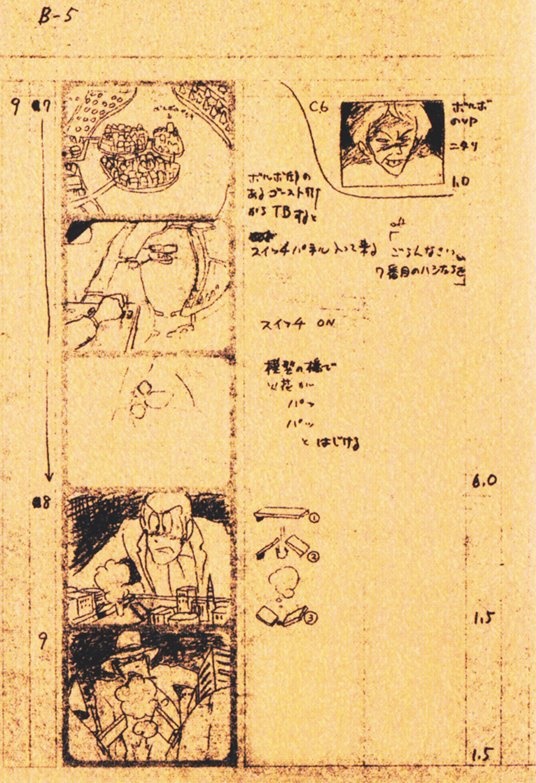 B-5
9
7
C.6
ボルボ
のUP
ニタリ
1.0
ボルボ
ある ゴースト
から TB すると
スイッチパネル入って来る
「ごらんなさい
7番目のハシなるぞ」
スイッチ ON
模型の橋で
火花が
パッ
パッ
とはじける
6.0
8
①
②
③
1.5
9
1.5